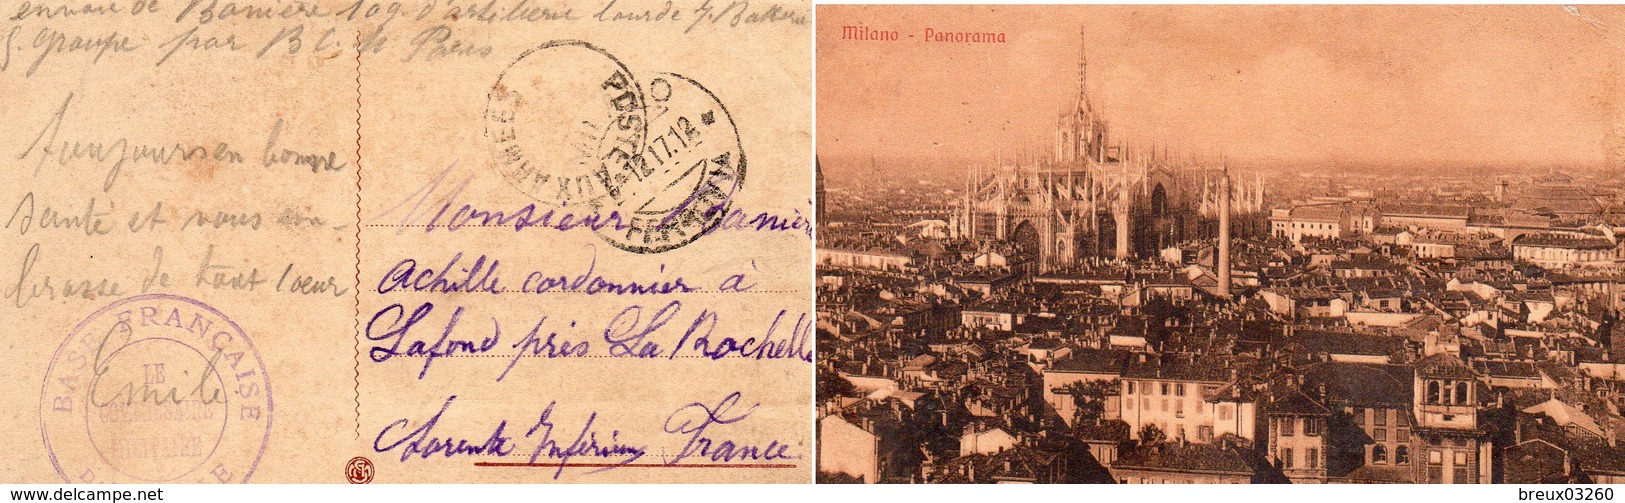 envoie de Banière 109. d'artillerie lourde 7. Batterie
5. groupe par B C. M Paris
Toujours en bonne
santé et vous em-
brasse de tout cœur
Emile
BASE FRANÇAISE
LE
COMMISSAIRE
MILITAIRE
POSTE
AUX ARMEES
12.17.12
FERROVIA
Monsieur Banière
Achille cordonnier à
Lafond près La Rochelle
Charente Inférieure France
Milano - Panorama
delcampe.net
breux03260